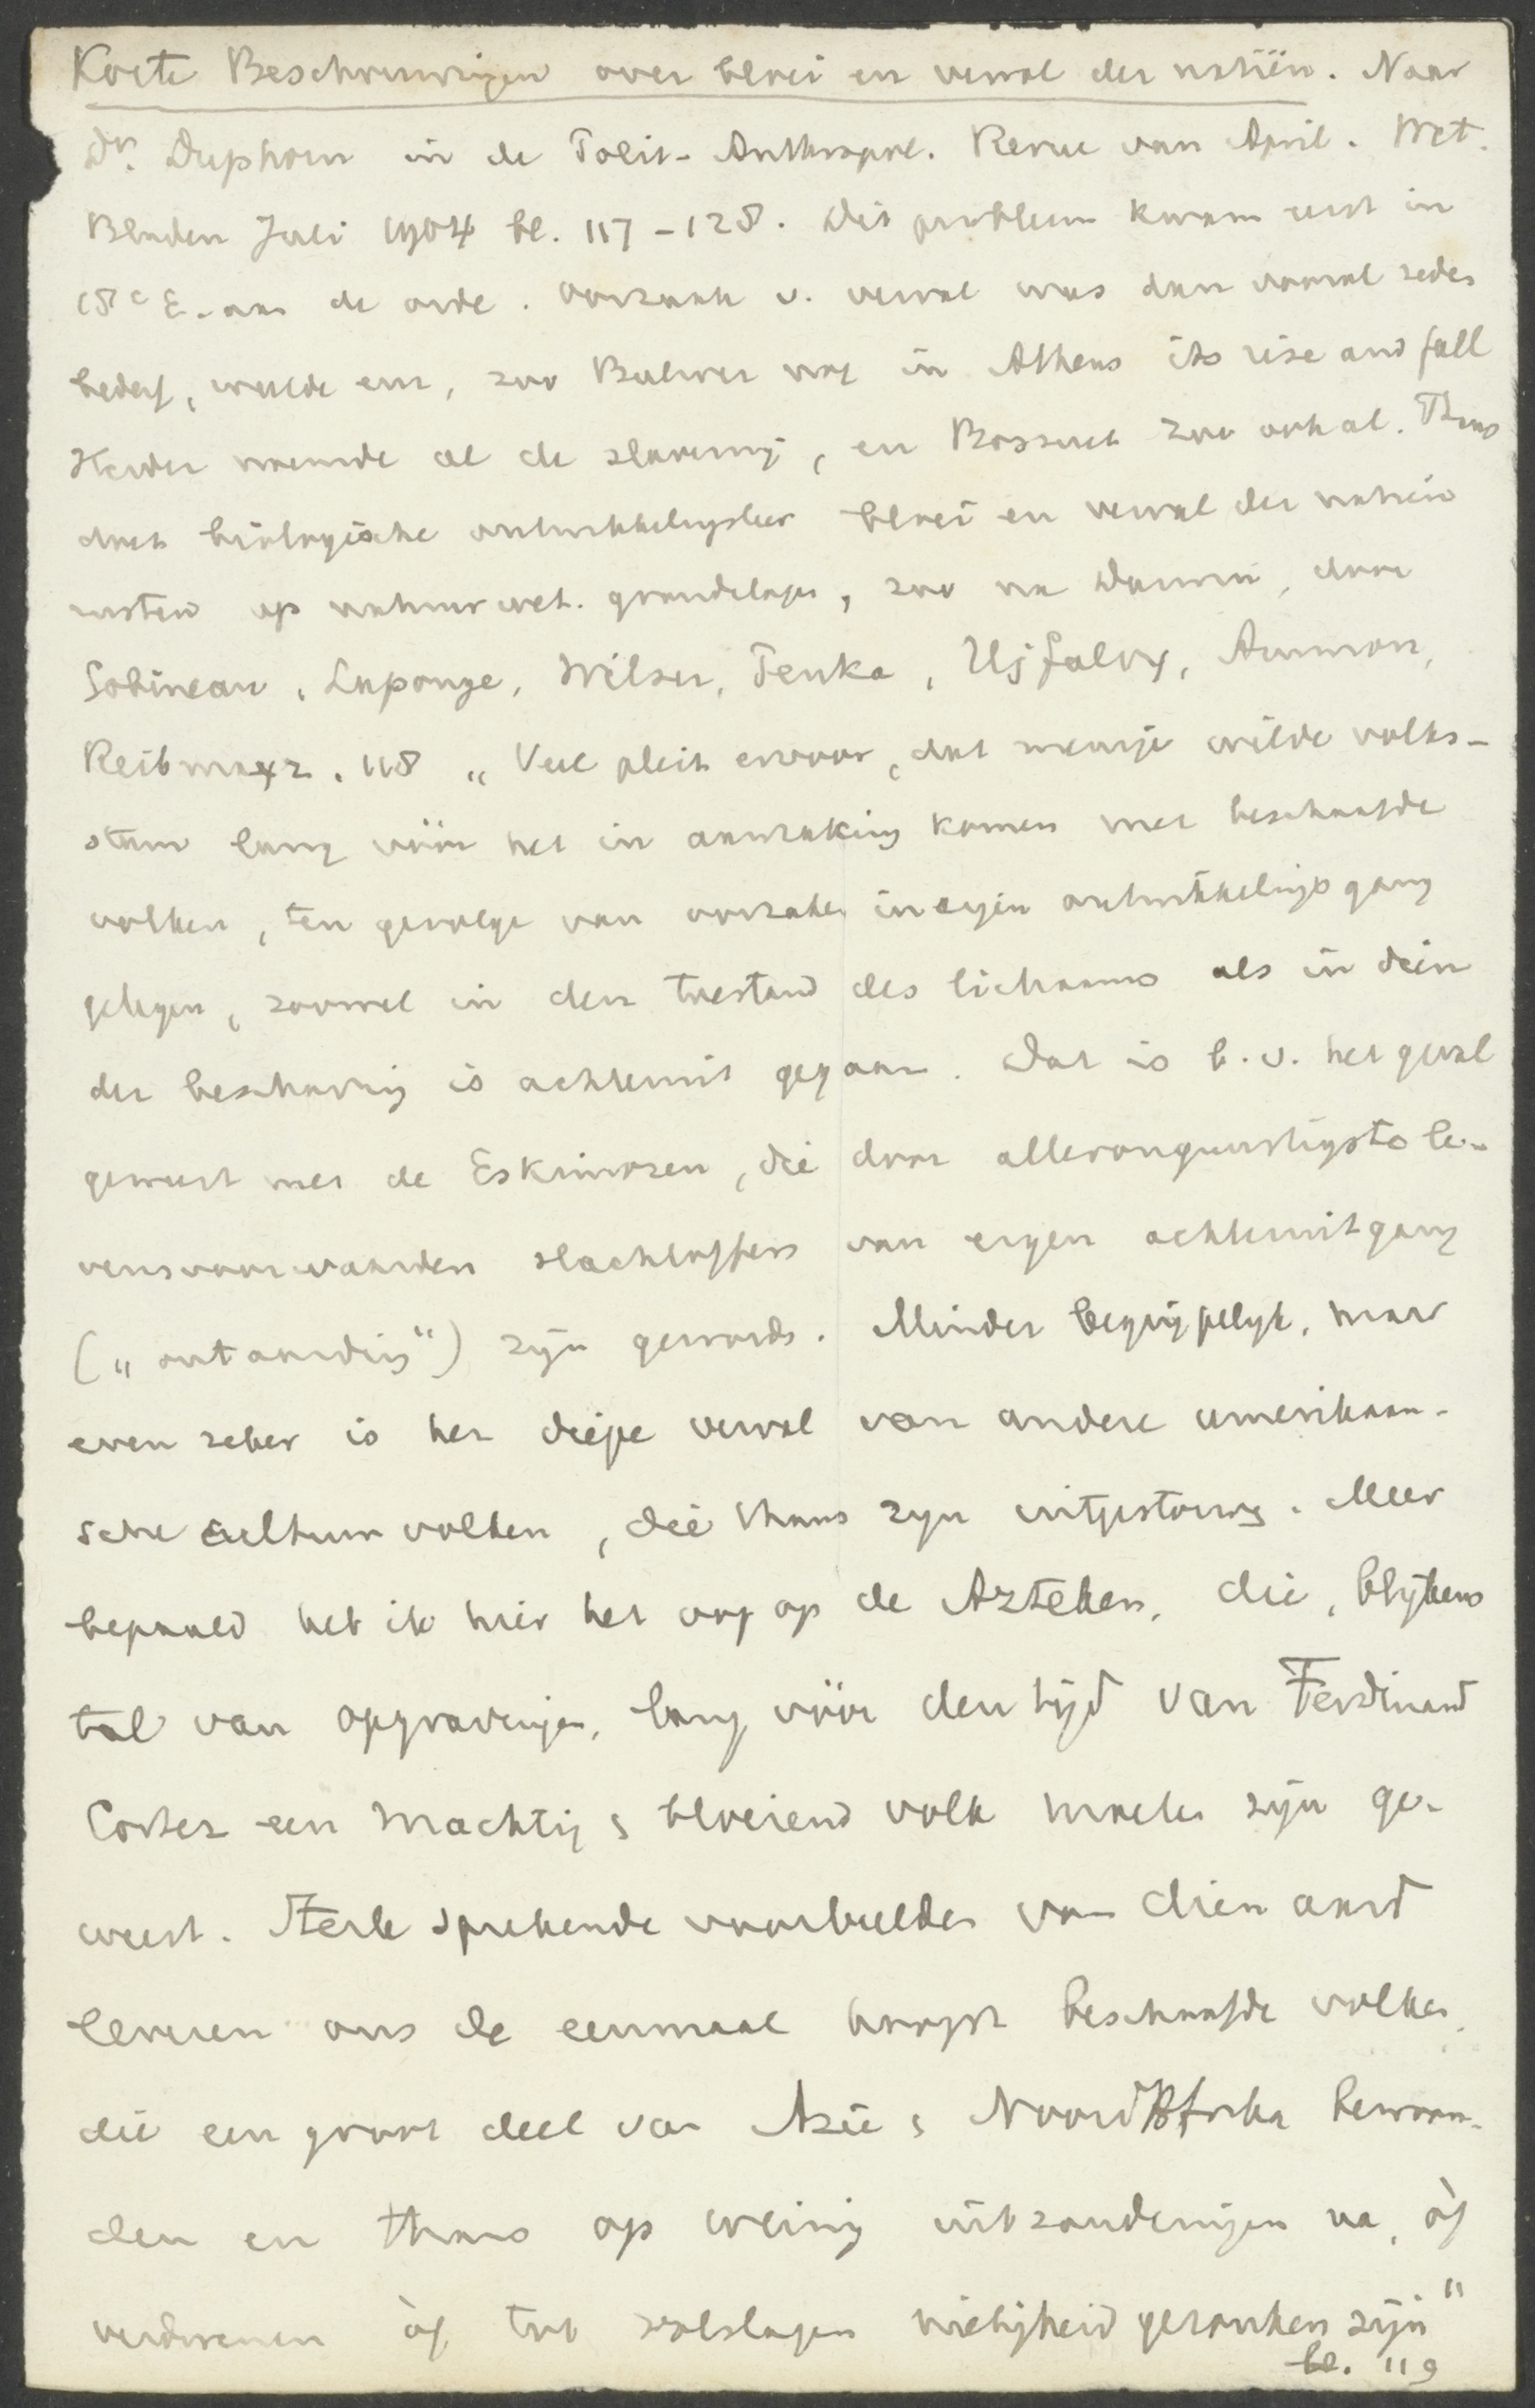 Korte Beschouwingen over bloei en verval der natiën. Naar
Dr. Duphorn in de Polit-Anthropol. Revue van April. Wet.
Bladen Juli 1904 bl. 117-128. Dit probleem kwam eerst in
18e E. aan de orde. Oorzaak v. verval was dan vooral zedes
bederf, weelde enz, zoo Bulwer nog in Athens its rise and fall
Herder noemde al de slavernij, en Bossuet zoo ook al. Thans
doet biologische ontwikkelingsleer bloei en verval der natien
rusten op natuurwet. grondslagen, zoo na Darwin, door
Gobineau, Lapouge, Wilser, Penka, Ujfalvy, Ammon,
Reibmayr. 118 „Veel pleit ervoor, dat menige wilde volks-
stam lang vóór het in aanraking komen met beschaafde
volken, ten gevolge van oorzaken in eigen ontwikkelings gang
gelegen, zoowel in den toestand des lichaams als in dien
der beschaving is achteruit gegaan. Dat is b.v. het geval
geweest met de Eskimozen, die door allerongunstigste le-
vensvoorwaarden slachtoffers van eigen achteruitgang
(„ontaarding") zijn geword. Minder begrijpelijk, maar
even zeker is het diepe verval van andere amerikaan-
sche cultuurvolken, die thans zijn uitgestorv. Meer
bepaald heb ik hier het oog op de Azteken, die, blijkens
tal van opgravingen, lang vóór den tijd van Ferdinand
Cortez een machtig & bloeiend volk moeten zijn ge-
weest. Sterk sprekende voorbeelden van dien aard
leveren ons de eenmaal hoogst beschaafde volken,
die een groot deel van Azië & Noord Afrika bewoon-
den en thans op weinig uitzonderingen na, òf
verdwenen òf tot volslagen nietigheid gezonken zijn"
bl. 119